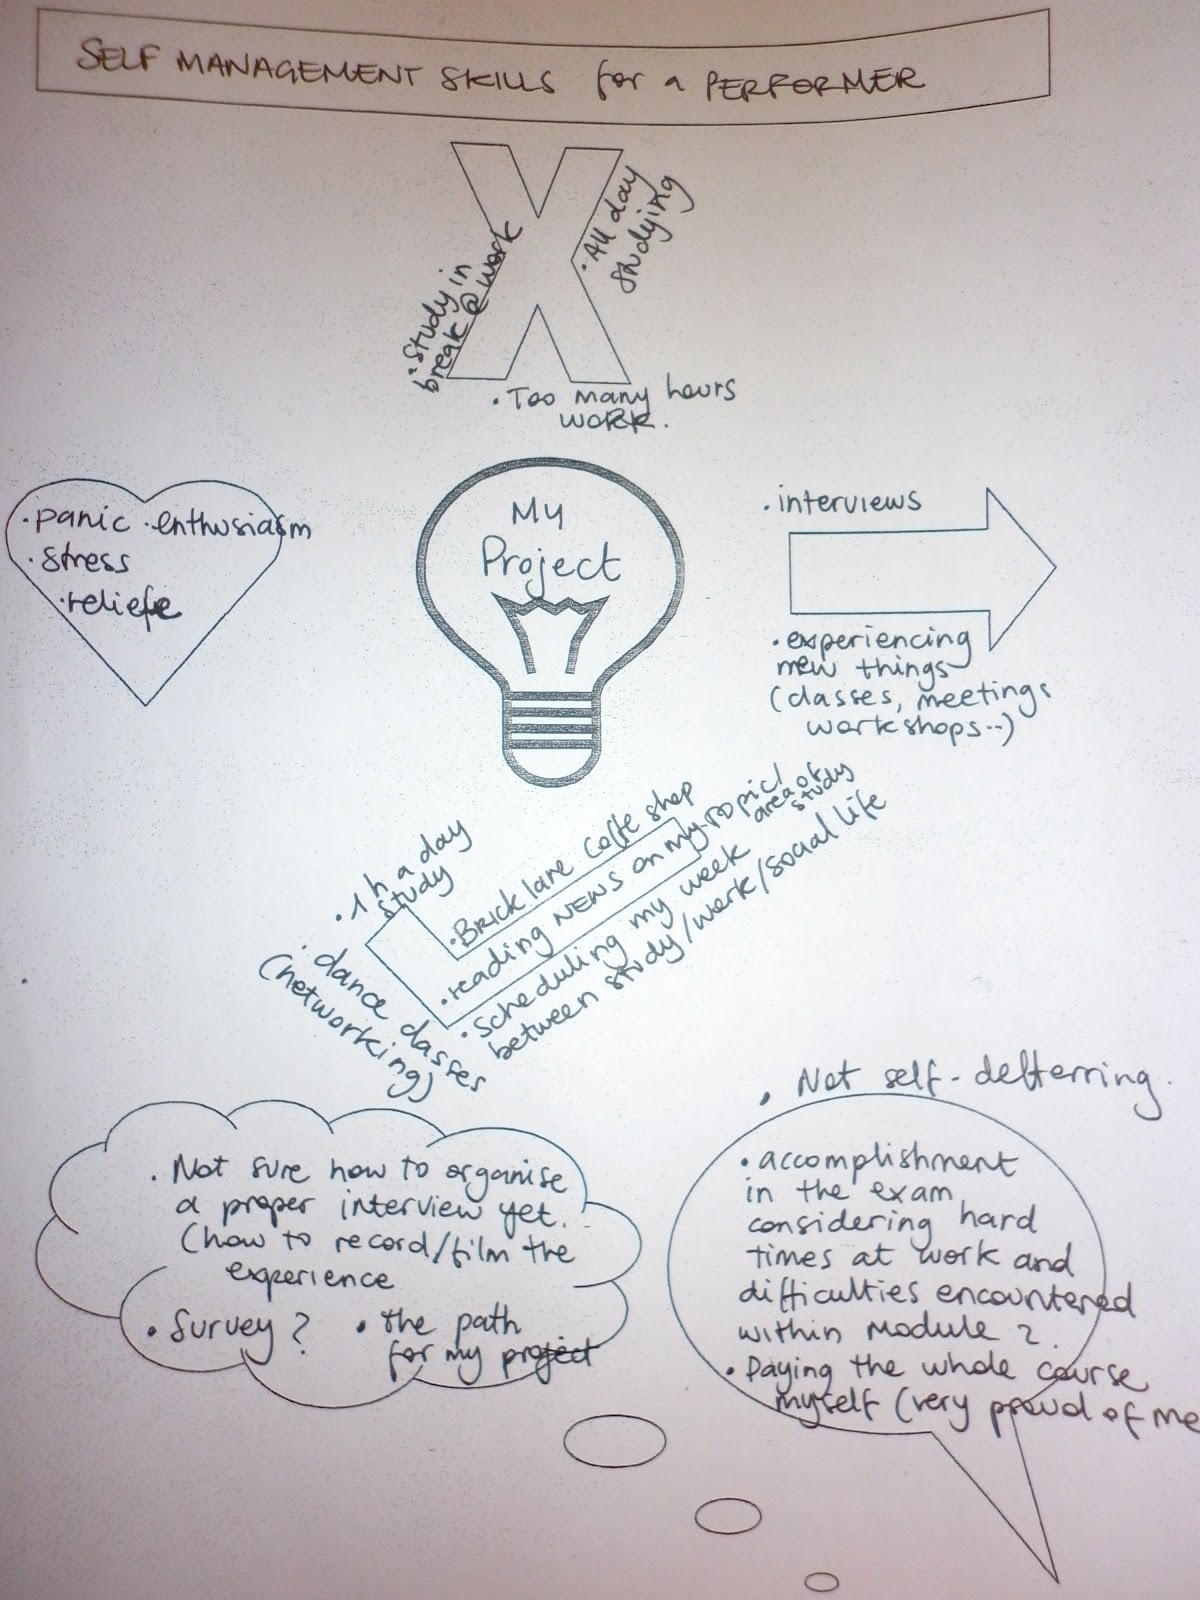 SELF MANAGEMENT SKILLS for a PERFORMER
· Study in
break @ work
· All day
studying
· Too many hours
work.
· panic · enthusiasm
· stress
· reliefe
My
Project
· interviews
· experiencing
new things
(classes, meetings
workshops..)
· 1 h a day
study
· dance classes
(networking)
· Brick lane Coffe shop
· reading NEWS on my topic/
area of
study
· scheduling my week
between study/work/social life
· Not sure how to organise
a proper interview yet.
(how to record/film the
experience
· Survey ?
· the path
for my project
· Not self-defterring.
· accomplishment
in the exam,
considering hard
times at work and
difficulties encountered
within Module 2.
· Paying the whole course
myself (very proud of me